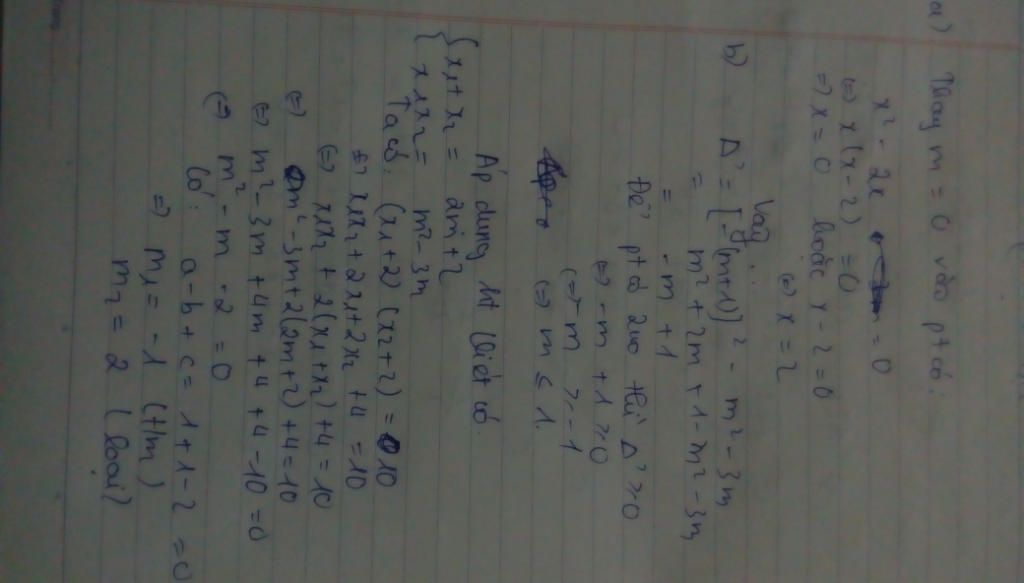 a) Thay m = 0 vào pt có:
x² - 2x = 0
(=) x(x - 2) = 0
=) x = 0 hoặc x - 2 = 0
(=) x = 2
Vậy
b) Δ' = [-(m+1)]² - m² - 3m
= m² + 2m + 1 - m² - 3m
= -m + 1
Để pt có 2no thì Δ' ≥ 0
(=) -m + 1 ≥ 0
(=) -m ≥ -1
(=) m ≤ 1.
Áp dụng ht Viét có.
{ x₁ + x₂ = 2m + 2
x₁x₂ = m² - 3m
Ta có: (x₁+2)(x₂+2) = 10
(=) x₁x₂ + 2x₁ + 2x₂ + 4 = 10
(=) x₁x₂ + 2(x₁+x₂) + 4 = 10
(=) m² - 3m + 2(2m+2) + 4 = 10
(=) m² - 3m + 4m + 4 + 4 - 10 = 0
(=) m² - m - 2 = 0
Có: a - b + c = 1 + 1 - 2 = 0
=) m₁ = -1 (t/m)
m₂ = 2 (loại)